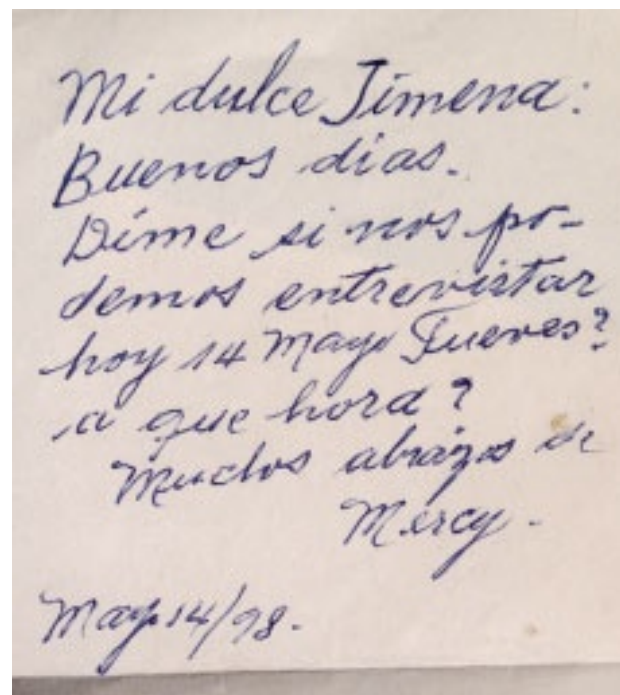 Mi dulce Jimena:
Buenos días.
Díme si nos po-
demos entrevistar
hoy 14 Mayo Jueves?
a que hora?
Muchos abrazos de
Mercy.
Mayo 14/98.